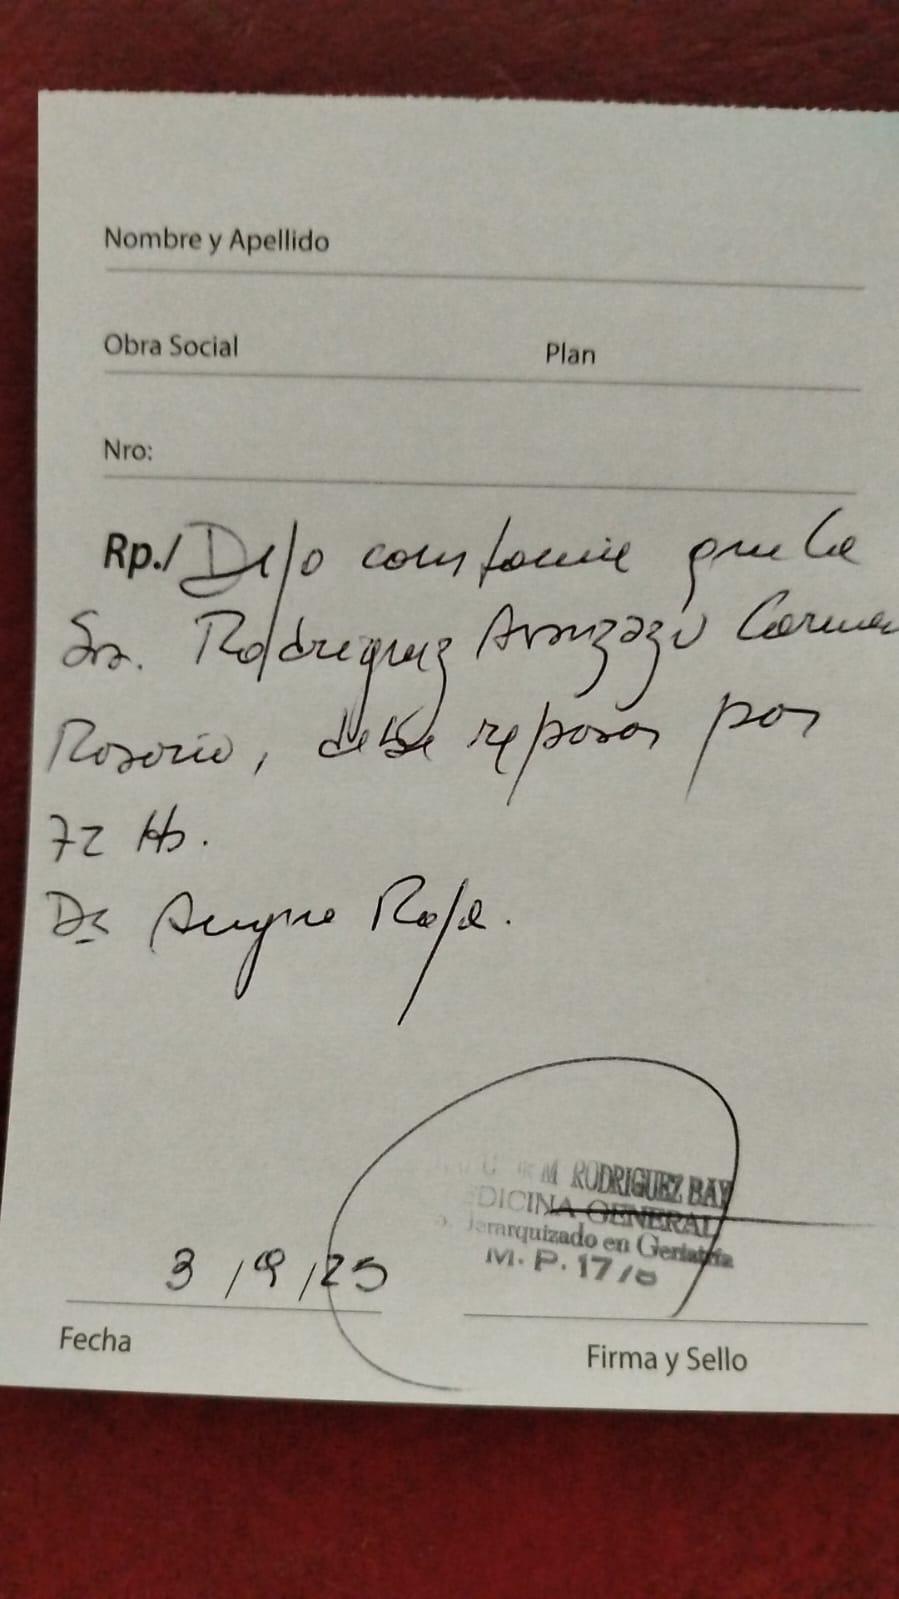 Nombre y Apellido
Obra Social Plan
Nro:
Rp./ Dejo constancia que la
Sra. Rodriguez Aranzazu Carmen
Rosario, debe reposar por
72 Hs.
D:
3/9/25
M RODRIGUEZ BAY
DICINA GENERAL
Jerarquizado en Geriatría
M. P. 17
Fecha
Firma y Sello